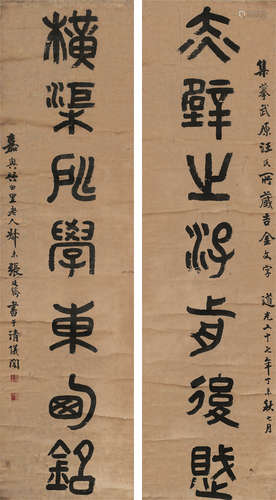 集摹武原汪氏所藏吉金文字 道光二十七年丁未秋七月
赤壁之游前後賦
橫渠所學東西銘
嘉興竹田里老人叔未張廷濟書于清儀閣